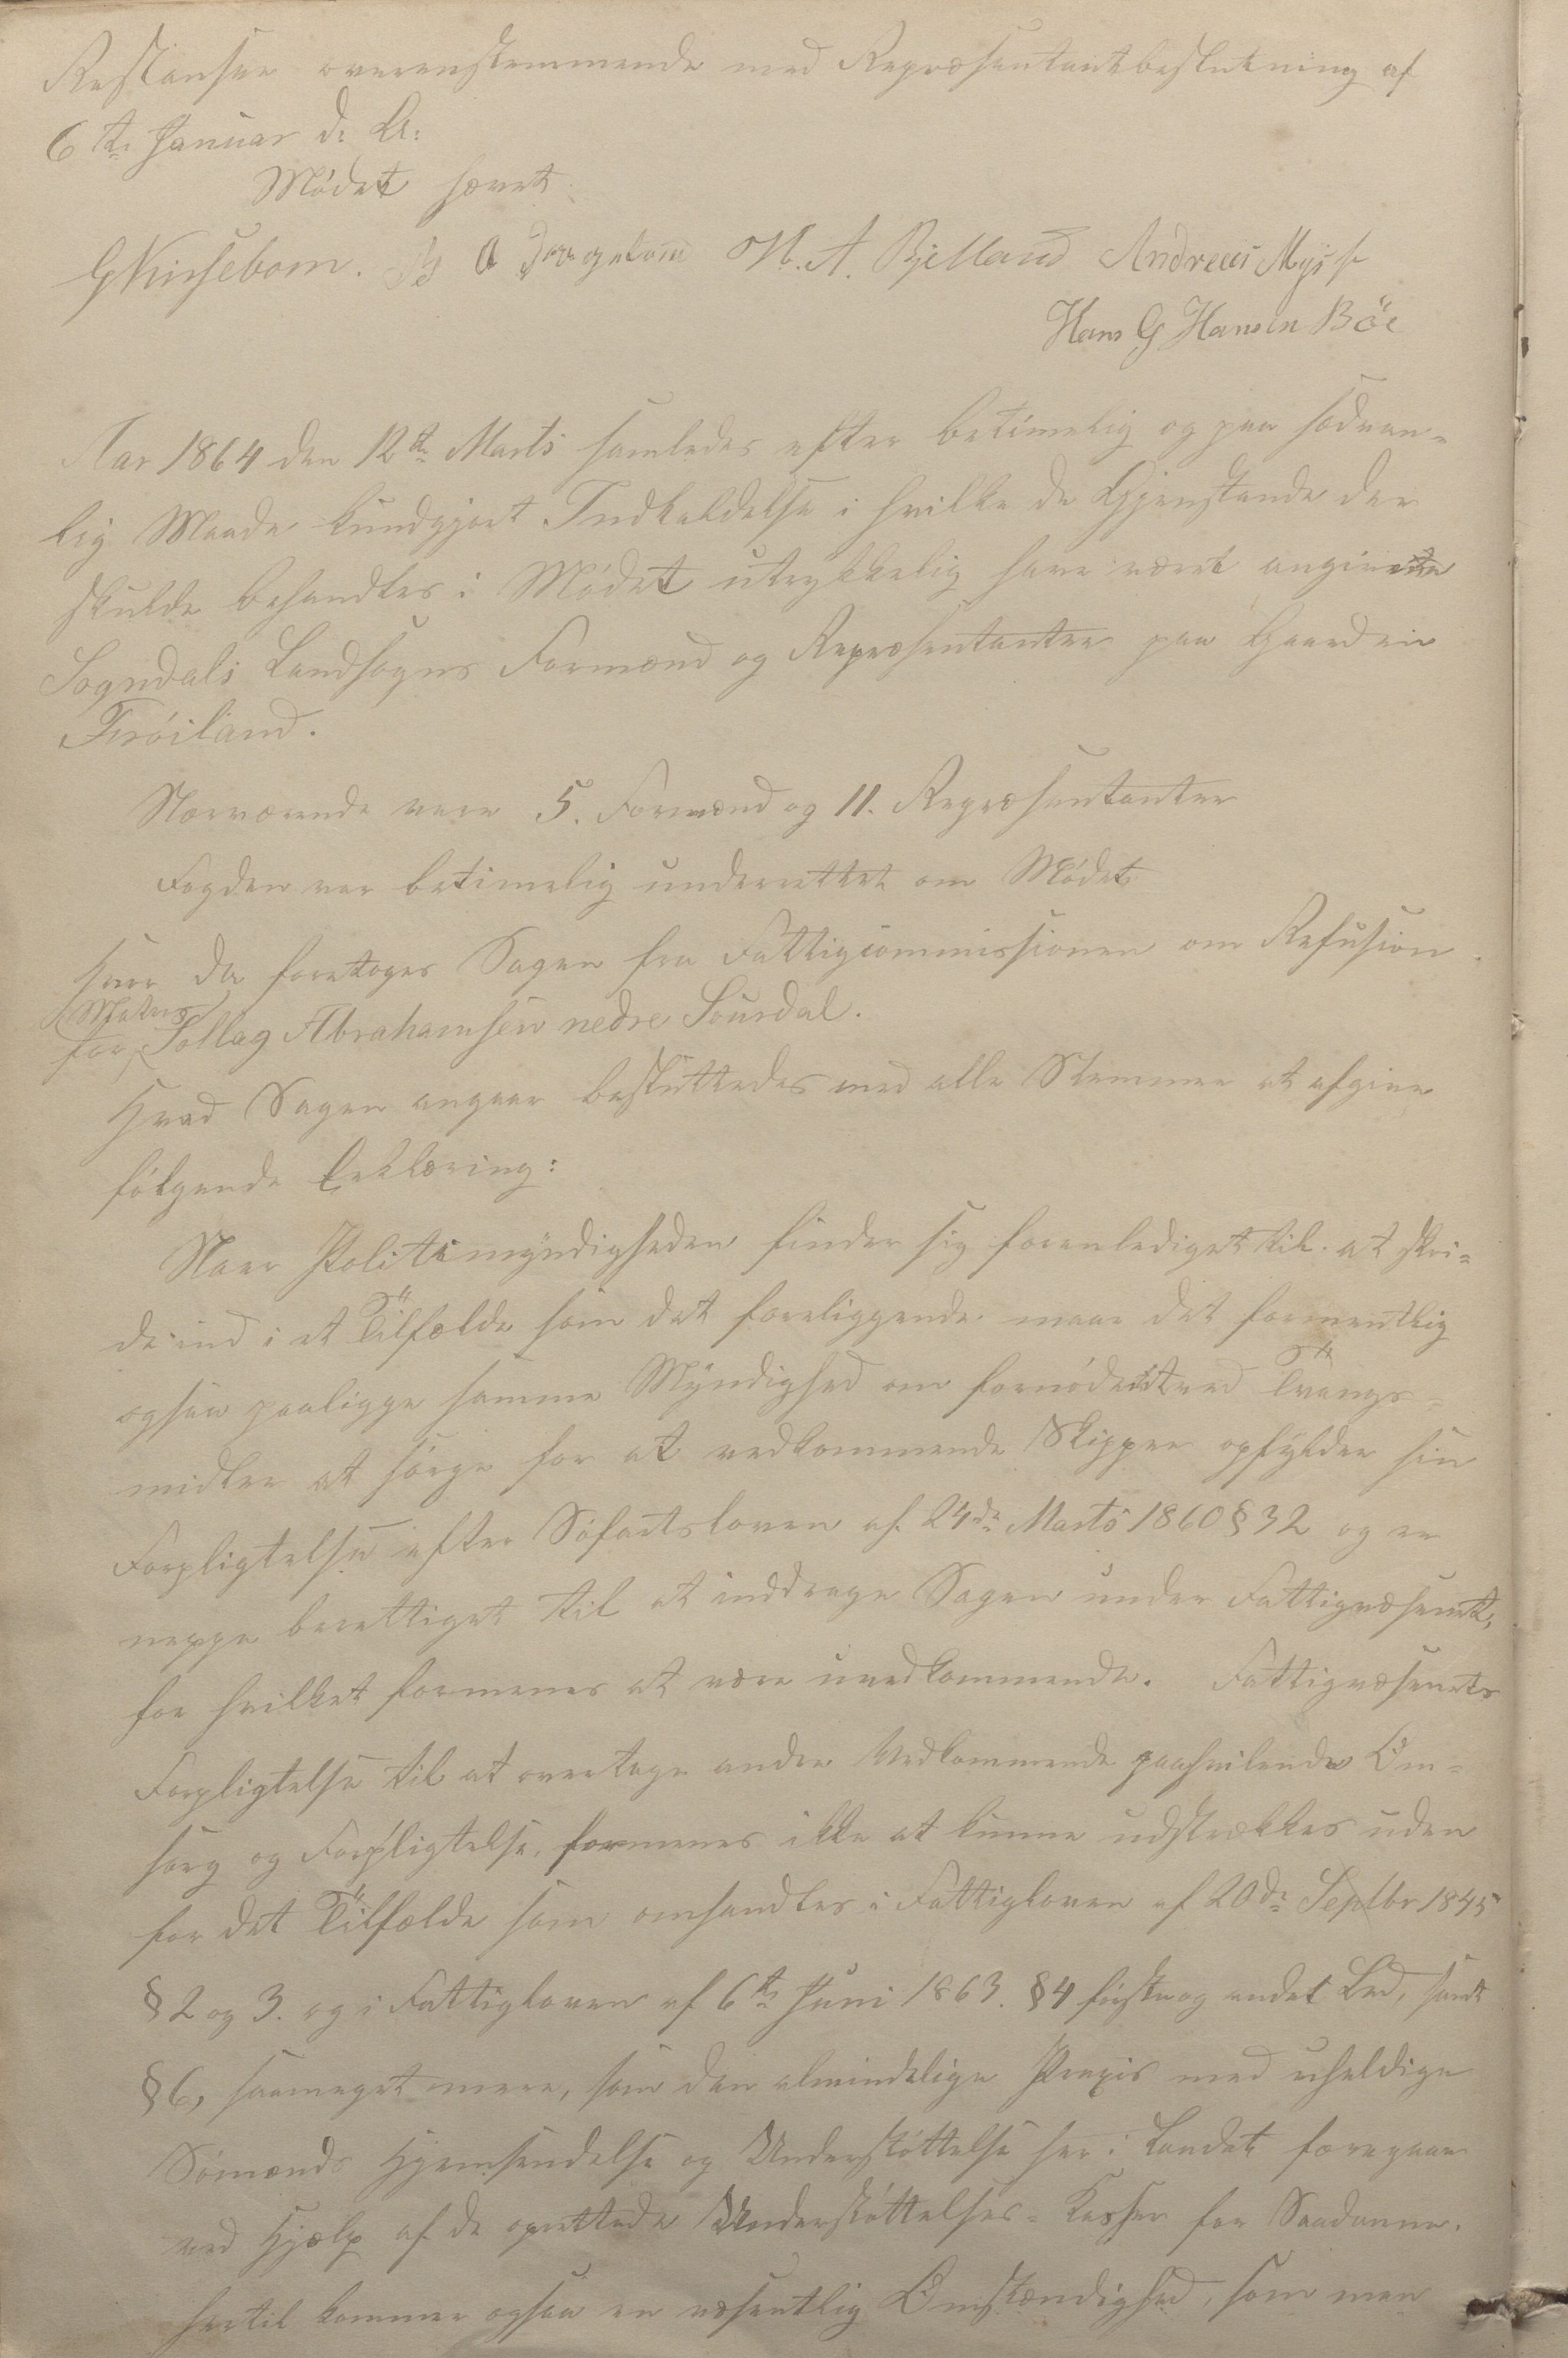 Restanser overensstemmende med Repræsentantbeslutning af
6te Januar d: A:
Mødet hævet.
G Kirsebom. A. Bjelland Andreas
Hans G Hansen Böe
Aar 1864 den 12te Marts samledes efter betimelig og paa sædvan-
lig Maade kundgjort Indkaldelse i hvilke de Gjenstande der
skulde behandles i Mødet utrykkelig have været angivne
Sogndals Landsogns Formænd og Repræsentanter paa Gaarden
Frøiland.
Nærværende vare 5. Formænd og 11. Repræsentanter
Fogden var betimelig underrettet om Mødet
hvor da foretoges Sagen fra Fattigcommissionen om Refusion
for Matros Tollag Abrahamsen nedre Sourdal.
Hvad Sagen angaar besluttedes med alle Stemmer at afgive
følgende Erklæring:
Naar Politimyndigheden finder sig foranlediget til at skri-
de ind i et Tilfælde som det foreliggende maae det formentlig
ogsaa paaligge samme Myndighed om fornødent ved Tvangs-
midler at sørge for at vedkommende Skipper opfylder sin
Forpligtelse efter Søfartsloven af 24de Marts 1860 § 32 og er
neppe berettiget til at inddrage Sagen under Fattigvæsenet,
for hvilket formenes at være uvedkommende. Fattigvæsenets
Forpligtelse til at overtage andre Vedkommende paahvilende Om-
sorg og Forpligtelse, formenes ikke at kunne udstrækkes uden
for det Tilfælde som omhandles i Fattigloven af 20de Septbr 1845
§ 2 og 3. og i Fattigloven af 6te Juni 1863. § 4 første og andet Led, samt
§ 6, saameget mere, som den almindelige Praxis med uheldige
Sømænds Hjemsendelse og Understøttelse her i Landet foregaar
ved Hjælp af de oprettede Understøttelses-Kasser for Saadanne.
Hertil kommer ogsaa en væsentlig Omstændighed, som man